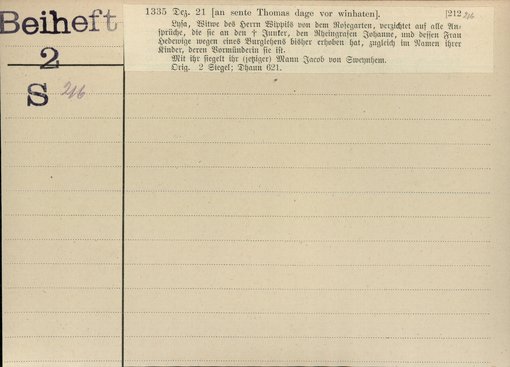 Beiheft
2
S 216
1335 Dez. 21 [an sente Thomas dage vor winhaten]. [212 216
Lysa, Witwe des Herrn Wippils von dem Rosegarten, verzichtet auf alle An-
sprüche, die sie an den † Junker, den Rheingrafen Johanne, und dessen Frau
Hedewige wegen eines Burglehens bisher erhoben hat, zugleich im Namen ihrer
Kinder, deren Vormünderin sie ist.
Mit ihr siegelt ihr (jetziger) Mann Jacob von Sweynhem.
Orig. 2 Siegel; Dhaun 621.